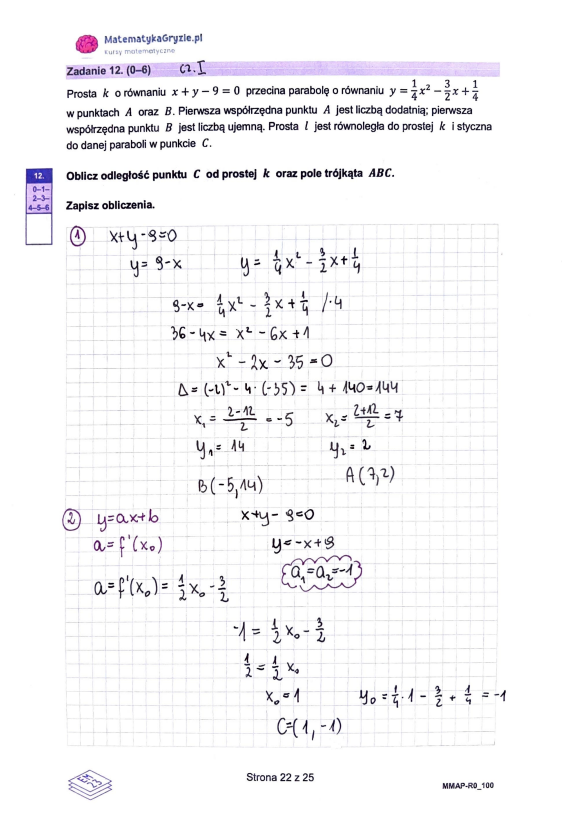 MatematykaGryzie.pl
kursy matematyczne
Zadanie 12. (0–6) CZ. I
Prosta k o równaniu x + y − 9 = 0 przecina parabolę o równaniu y = 1/4 x² − 3/2 x + 1/4
w punktach A oraz B. Pierwsza współrzędna punktu A jest liczbą dodatnią; pierwsza
współrzędna punktu B jest liczbą ujemną. Prosta l jest równoległa do prostej k i styczna
do danej paraboli w punkcie C.
12.
0–1–
2–3–
4–5–6
Oblicz odległość punktu C od prostej k oraz pole trójkąta ABC.
Zapisz obliczenia.
① x+y-9=0
y= 9-x y= 1/4 x² - 3/2 x + 1/4
9-x= 1/4 x² - 3/2 x + 1/4 /·4
36-4x = x² - 6x + 1
x² - 2x - 35 = 0
Δ = (-2)² - 4·(-35) = 4 + 140 = 144
x₁ = (2-12)/2 = -5 x₂ = (2+12)/2 = 7
y₁ = 14 y₂ = 2
B(-5,14) A(7,2)
② y=ax+b x+y-9=0
a=f'(x₀) y=-x+9
a=f'(x₀)= 1/2 x₀ - 3/2 a₁=a₂=-1
-1 = 1/2 x₀ - 3/2
1/2 = 1/2 x₀
x₀=1 y₀ = 1/4·1 - 3/2 + 1/4 = -1
C=(1,-1)
Strona 22 z 25
MMAP-R0_100